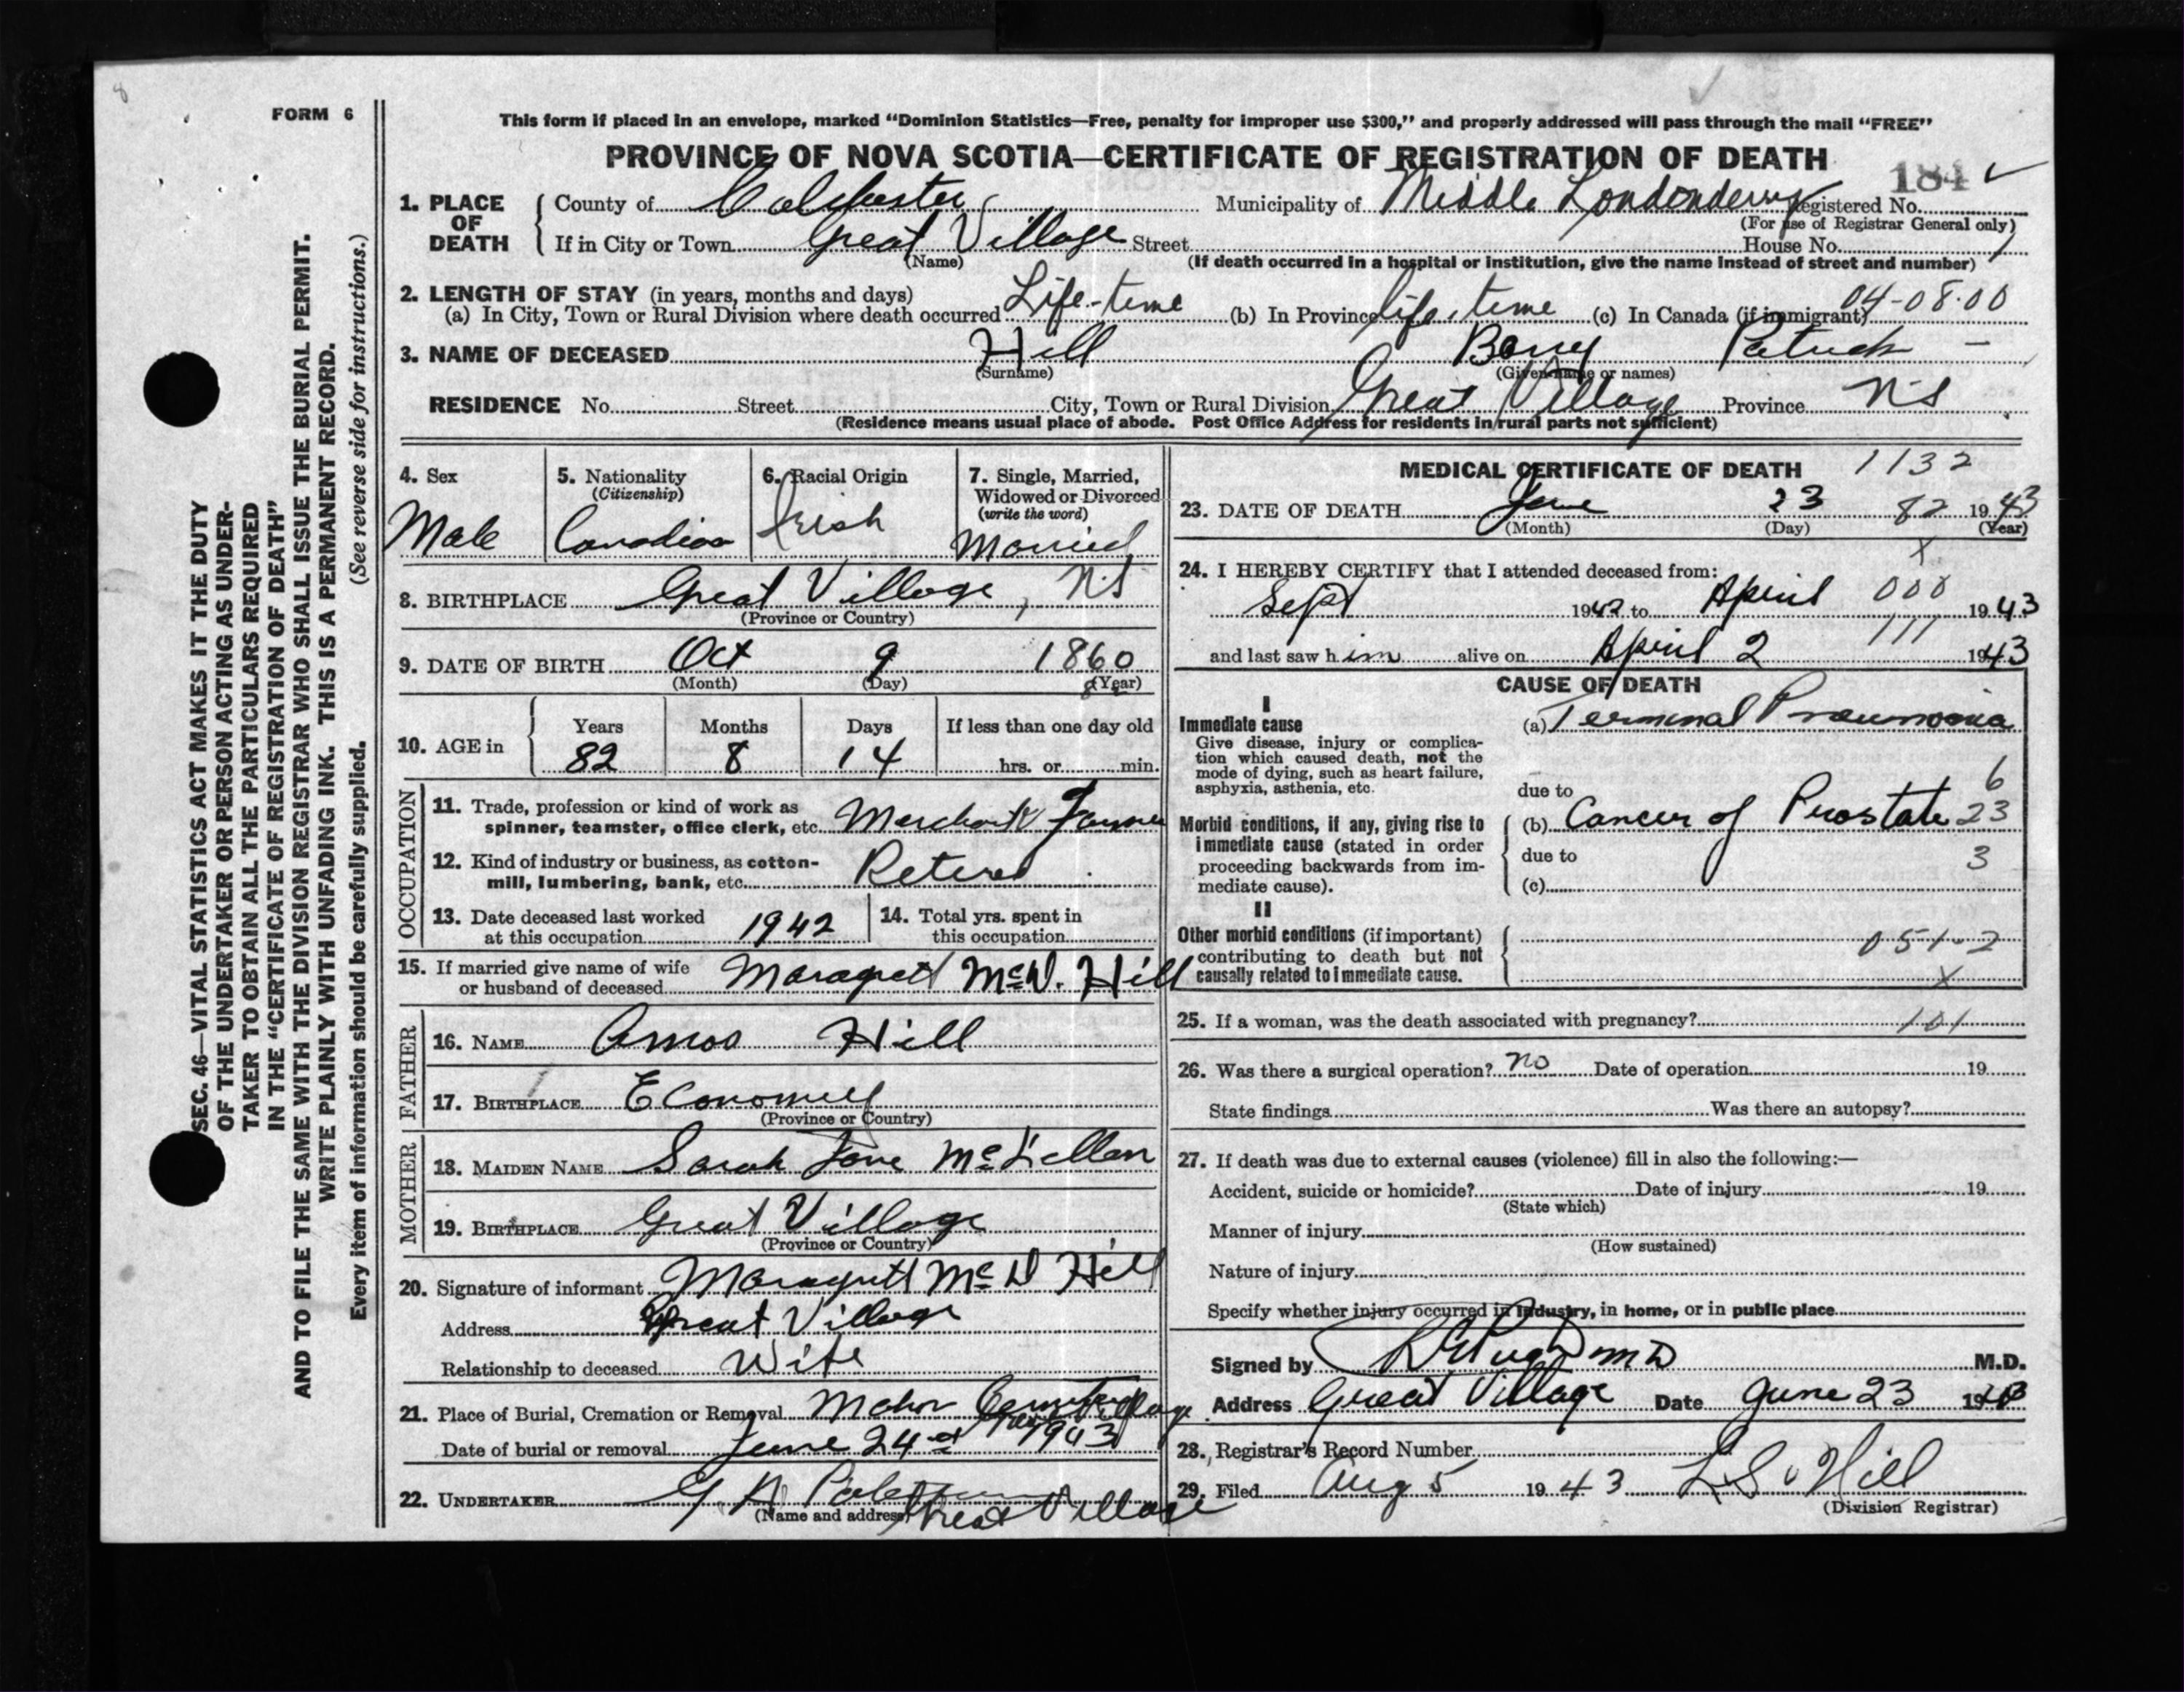 8
FORM 6
This form if placed in an envelope, marked "Dominion Statistics—Free, penalty for improper use $300," and properly addressed will pass through the mail "FREE"
PROVINCE OF NOVA SCOTIA—CERTIFICATE OF REGISTRATION OF DEATH
184
1. PLACE OF DEATH
County of Colchester Municipality of Middle Londonderry Registered No.
(For use of Registrar General only)
If in City or Town Great Village Street House No.
(Name)
(If death occurred in a hospital or institution, give the name instead of street and number)
2. LENGTH OF STAY (in years, months and days)
(a) In City, Town or Rural Division where death occurred Life-time (b) In Province life-time (c) In Canada (if immigrant) 04-08-00
3. NAME OF DECEASED Hill Patrick
(Surname) (Given name or names)
RESIDENCE No. Street City, Town or Rural Division Great Village Province NS
(Residence means usual place of abode. Post Office Address for residents in rural parts not sufficient)
4. Sex
Male
5. Nationality
(Citizenship)
Canadian
6. Racial Origin
Irish
7. Single, Married,
Widowed or Divorced
(write the word)
Married
8. BIRTHPLACE Great Village, NS
(Province or Country)
9. DATE OF BIRTH Oct 9 1860
(Month) (Day) (Year)
10. AGE in
Years Months Days If less than one day old
82 8 14 hrs. or min.
OCCUPATION
11. Trade, profession or kind of work as
spinner, teamster, office clerk, etc. Merchant & Farmer
12. Kind of industry or business, as cotton-
mill, lumbering, bank, etc. Retired
13. Date deceased last worked
at this occupation 1942
14. Total yrs. spent in
this occupation
15. If married give name of wife
or husband of deceased Maragrett McD. Hill
FATHER
16. NAME Amos Hill
17. BIRTHPLACE Economy
(Province or Country)
MOTHER
18. MAIDEN NAME Sarah Jane McLellan
19. BIRTHPLACE Great Village
(Province or Country)
20. Signature of informant Maragrett McD Hill
Address Great Village
Relationship to deceased Wife
21. Place of Burial, Cremation or Removal Mahon Cemetery Great Village
Date of burial or removal June 24 1943
22. UNDERTAKER Great Village
(Name and address)
MEDICAL CERTIFICATE OF DEATH 1132
23. DATE OF DEATH June 23 82 1943
(Month) (Day) (Year)
X
24. I HEREBY CERTIFY that I attended deceased from:
Sept 1942 to April 000 1943
111
and last saw him alive on April 2 1943
CAUSE OF DEATH
I
Immediate cause
Give disease, injury or complica-
tion which caused death, not the
mode of dying, such as heart failure,
asphyxia, asthenia, etc.
(a) Terminal Pneumonia
6
due to
Morbid conditions, if any, giving rise to
immediate cause (stated in order
proceeding backwards from im-
mediate cause).
(b) Cancer of Prostate 23
due to 3
(c)
II
Other morbid conditions (if important)
contributing to death but not
causally related to immediate cause.
051-2
X
25. If a woman, was the death associated with pregnancy? 101
26. Was there a surgical operation? no Date of operation 19
State findings Was there an autopsy?
27. If death was due to external causes (violence) fill in also the following:—
Accident, suicide or homicide? Date of injury 19
(State which)
Manner of injury
(How sustained)
Nature of injury
Specify whether injury occurred in industry, in home, or in public place
Signed by MD M.D.
Address Great Village Date June 23 1943
28. Registrar's Record Number
29. Filed Aug 5 1943 L S Hill
(Division Registrar)
SEC. 46—VITAL STATISTICS ACT MAKES IT THE DUTY
OF THE UNDERTAKER OR PERSON ACTING AS UNDER-
TAKER TO OBTAIN ALL THE PARTICULARS REQUIRED
IN THE "CERTIFICATE OF REGISTRATION OF DEATH"
AND TO FILE THE SAME WITH THE DIVISION REGISTRAR WHO SHALL ISSUE THE BURIAL PERMIT.
WRITE PLAINLY WITH UNFADING INK. THIS IS A PERMANENT RECORD.
Every item of information should be carefully supplied. (See reverse side for instructions.)